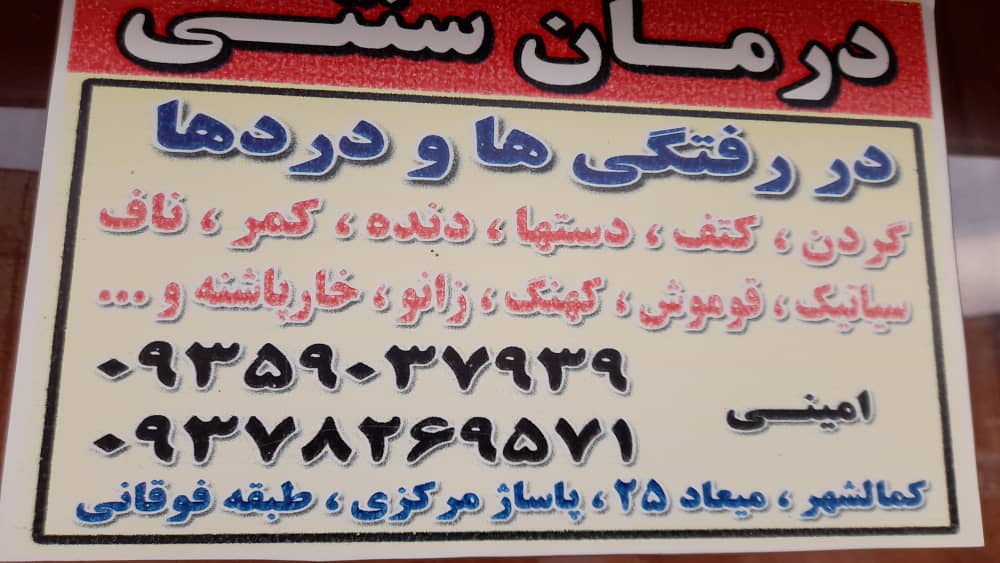 درمان سنتی
در رفتگی ها و دردها
گردن ، کتف ، دستها ، دنده ، کمر ، ناف
سیاتیک ، قوموش ، کهنک ، زانو ، خارپاشنه و ...
۰۹۳۵۹۰۳۷۹۳۹
امینی
۰۹۳۷۸۲۶۹۵۷۱
کمالشهر ، میعاد ۲۵ ، پاساژ مرکزی ، طبقه فوقانی